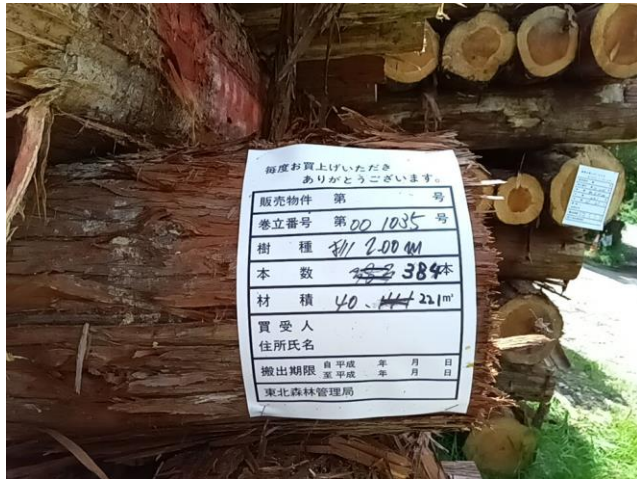 毎度お買上げいただき
ありがとうございます。
販売物件 第 号
巻立番号 第 00 1035 号
樹 種 2.00 m
本 数 384本
材 積 40. 221㎥
買 受 人
住所氏名
搬出期限 自 平成 年 月 日
至 平成 年 月 日
東北森林管理局